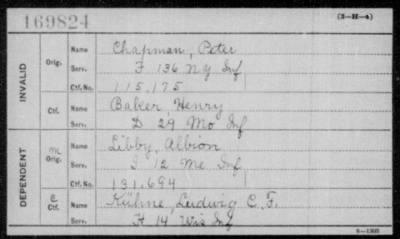 169824
(3-H-4)
INVALID
Orig.
Name Chapman, Peter
Serv. F 136 N Y Inf
Ctf. No. 115,175
Ctf.
Name Baker, Henry
Serv. D 29 Mo Inf
DEPENDENT
M
Orig.
Name Libby, Albion
Serv. I 12 Me Inf
Ctf. No. 131,694
C
Ctf.
Name Kühne, Ludwig C. F.
Serv. H 14 Wis Inf